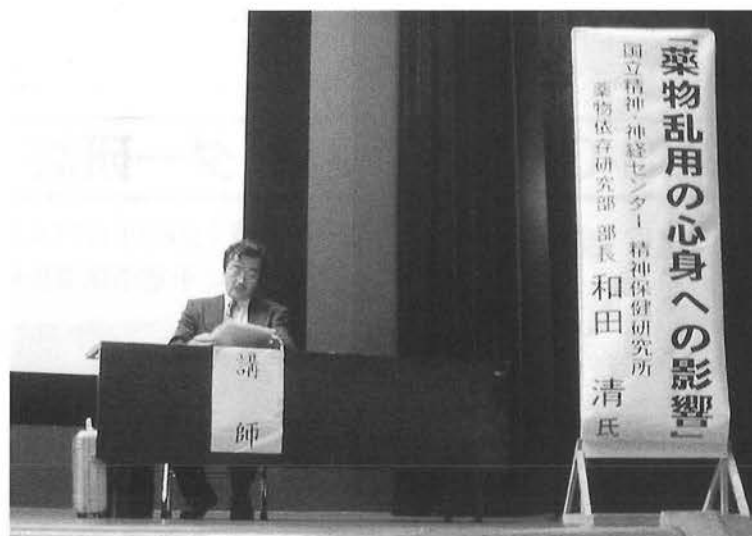 「薬物乱用の心身への影響」
国立精神・神経センター 精神保健研究所
薬物依存研究部 部長 和田 清氏
講師